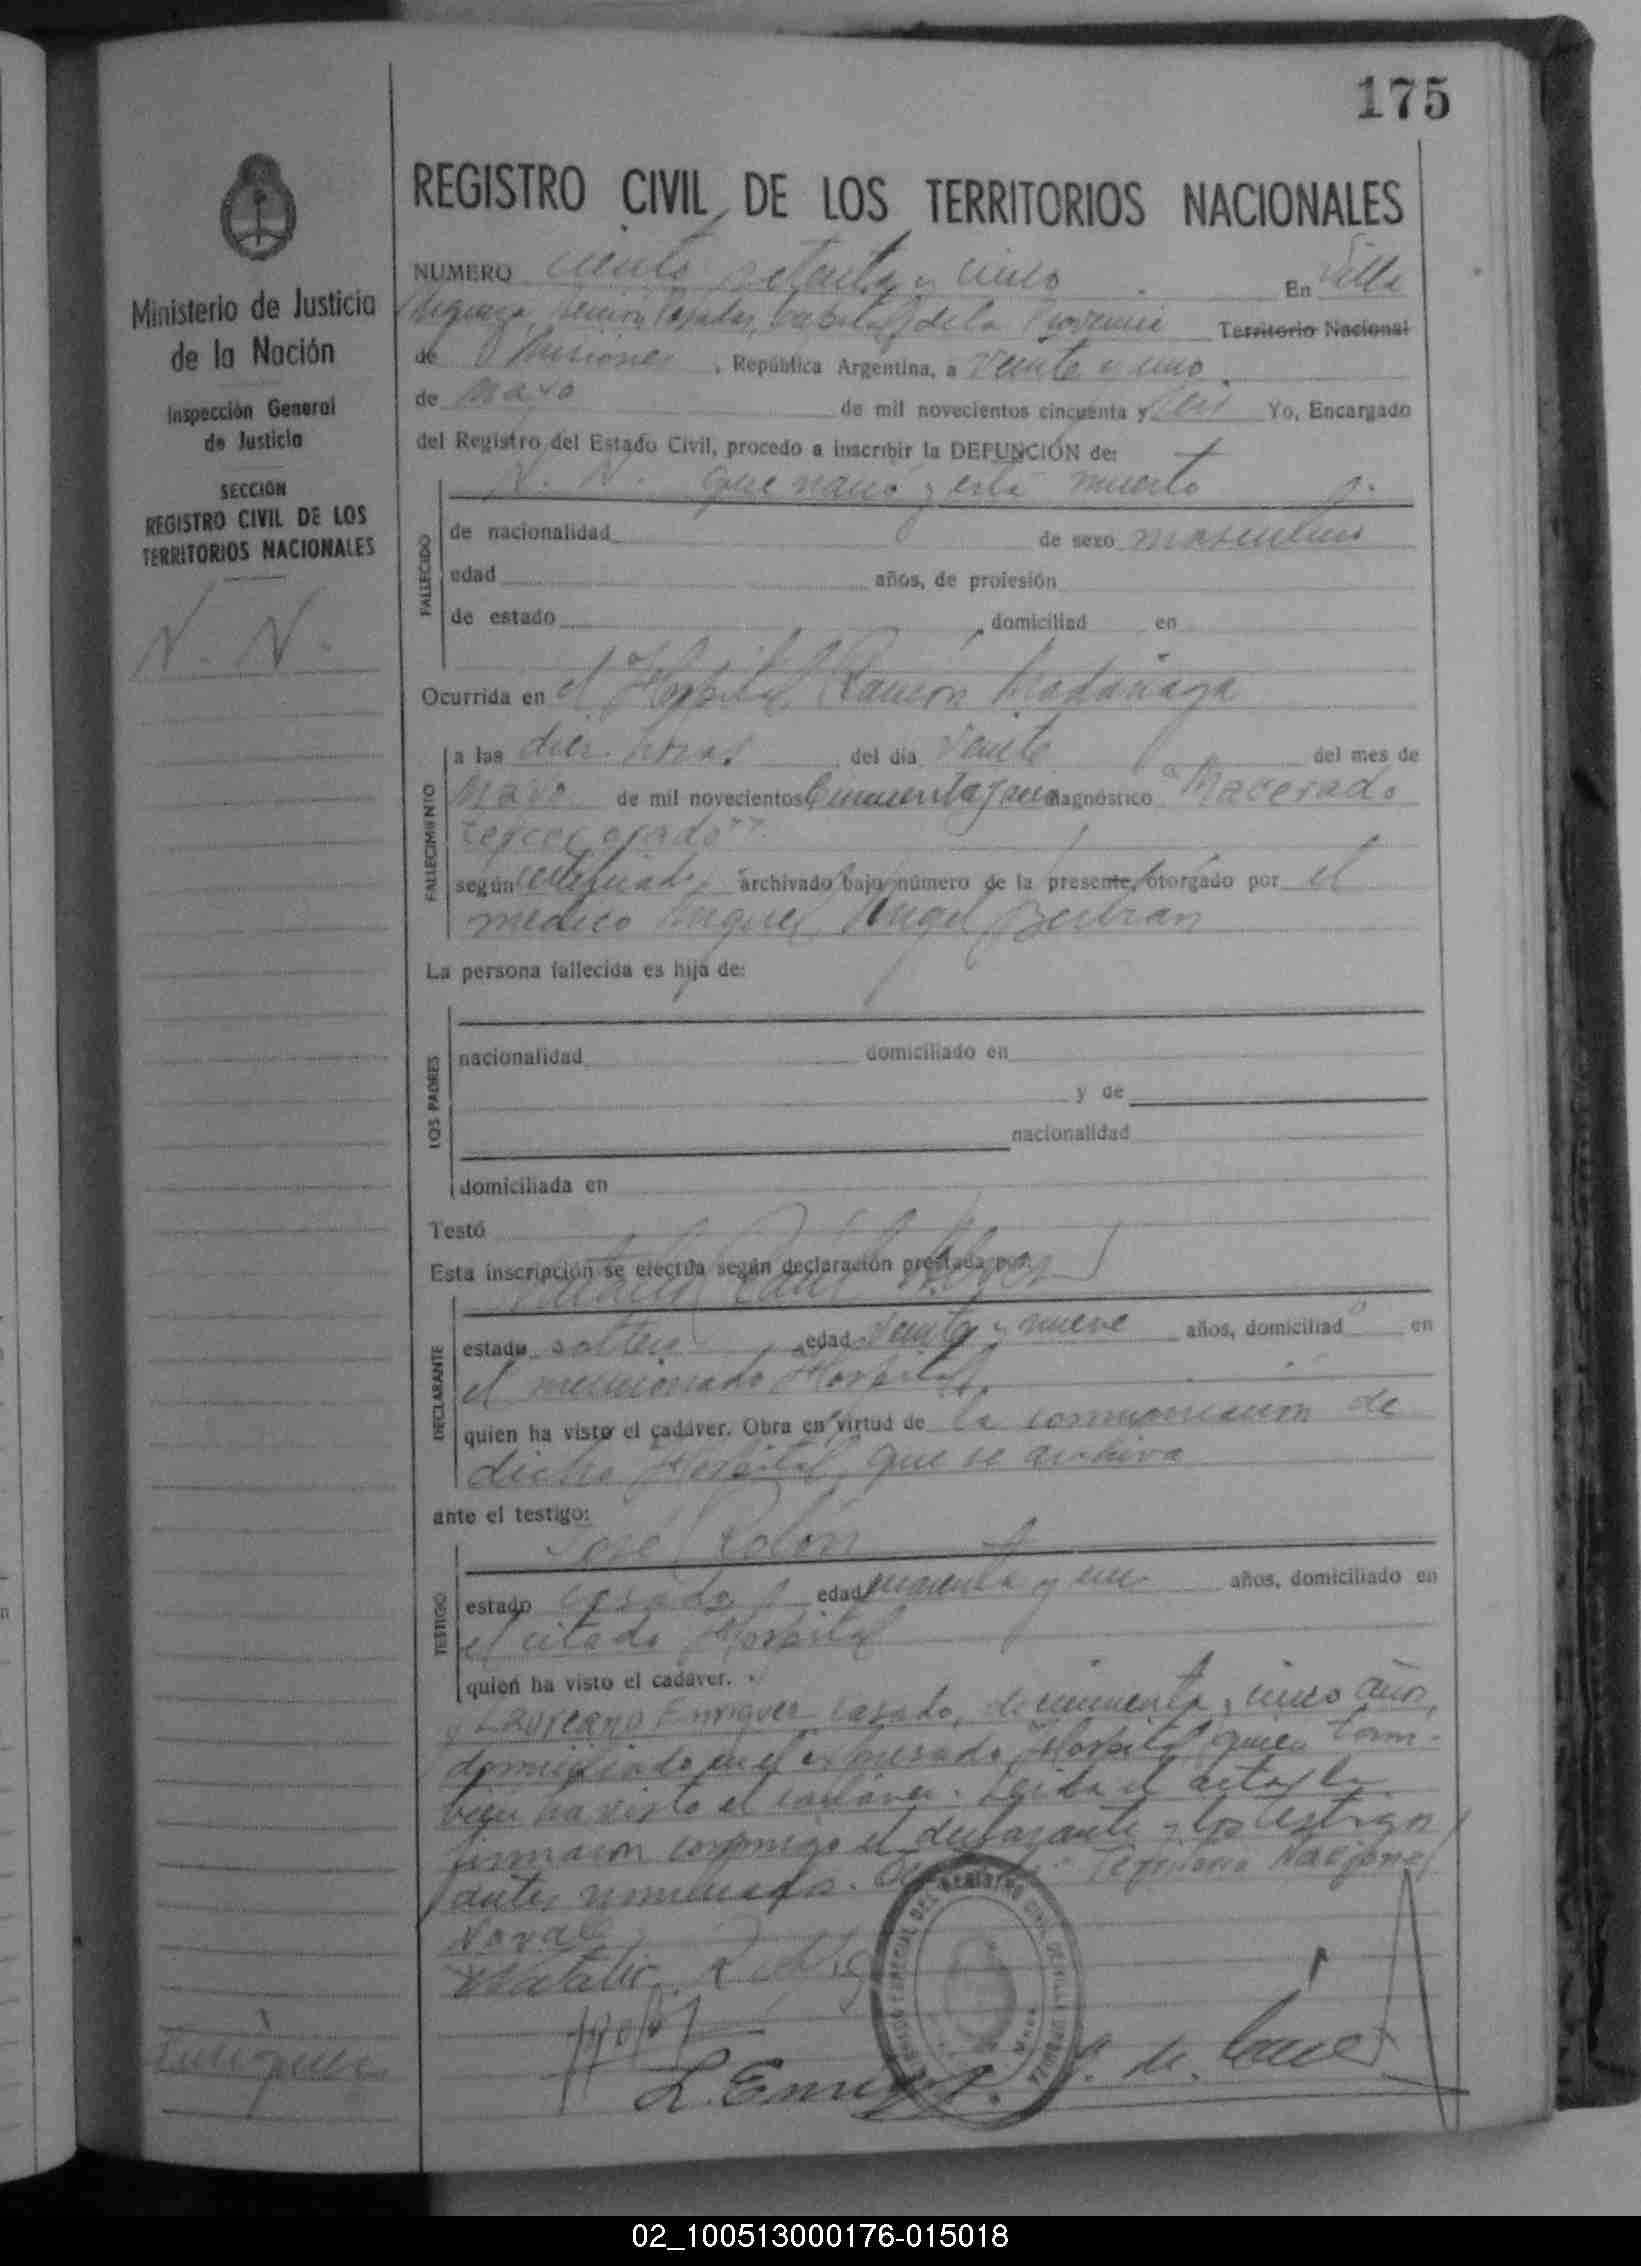 175
Ministerio de Justicia
de la Nación
Inspección General
de Justicia
SECCION
REGISTRO CIVIL DE LOS
TERRITORIOS NACIONALES
N. N.
REGISTRO CIVIL DE LOS TERRITORIOS NACIONALES
NUMERO ciento setenta y cinco En Villa
Urquiza, Sección Posadas, Capital de la Provincia Territorio Nacional
de Misiones, República Argentina, a veinte y uno
de Mayo de mil novecientos cincuenta y seis Yo, Encargado
del Registro del Estado Civil, procedo a inscribir la DEFUNCIÓN de:
N. N. que nació y está muerto
FALLECIDO
de nacionalidad de sexo masculino
edad años, de profesión
de estado, domiciliad en
Ocurrida en el Hospital Ramón Madariaga
FALLECIMIENTO
a las diez horas del día veinte del mes de
Mayo de mil novecientos cincuenta y seis diagnóstico "Macerado
tercer grado"
según certificado archivado bajo número de la presente, otorgado por el
médico Miguel Angel Beltran
La persona fallecida es hija de:
LOS PADRES
nacionalidad domiciliado en
y de
nacionalidad
domiciliada en
Testó
Esta inscripción se efectúa según declaración prestada por:
DECLARANTE
estado soltero edad veinte y nueve años, domiciliado en
el mencionado Hospital
quien ha visto el cadáver. Obra en virtud de la comunicación de
dicho Hospital, que se archiva
ante el testigo:
José Rolón
TESTIGO
estado casado edad cuarenta y un años, domiciliado en
el citado Hospital
quien ha visto el cadáver.
y Laureano Enriquez casado, de cincuenta y cinco años,
domiciliado en el expresado Hospital, quien tam-
bien ha visto el cadáver. Leida el acta, la
firmaron conmigo el declarante y los testigos
antes nombrados. Territorio Nacional
No vale
Enriquez
L. Enriquez
02_100513000176-015018